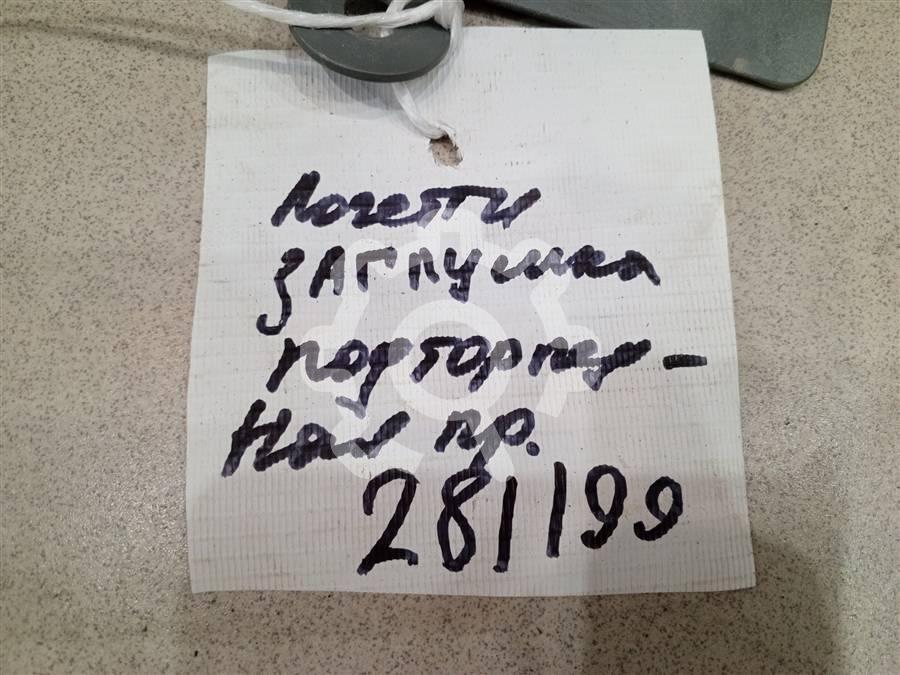 Лачетти
заглушка
подторпед-
ная пр.
281199